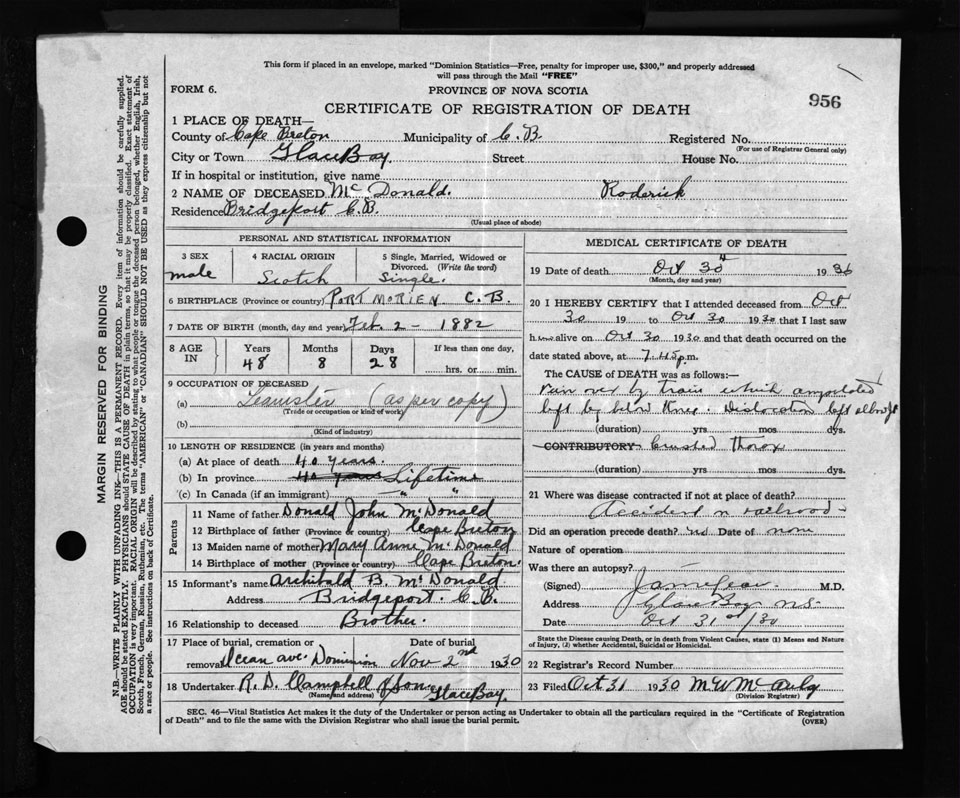 This form if placed in an envelope, marked "Dominion Statistics—Free, penalty for improper use, $300," and properly addressed
will pass through the Mail "FREE"
FORM 6. PROVINCE OF NOVA SCOTIA
956
CERTIFICATE OF REGISTRATION OF DEATH
1 PLACE OF DEATH—
County of Cape Breton Municipality of C.B. Registered No.
(For use of Registrar General only)
City or Town Glace Bay Street House No.
If in hospital or institution, give name
2 NAME OF DECEASED McDonald. Roderick
Residence Bridgeport C.B.
(Usual place of abode)
PERSONAL AND STATISTICAL INFORMATION
3 SEX 4 RACIAL ORIGIN 5 Single, Married, Widowed or Divorced. (Write the word)
male Scotch Single.
6 BIRTHPLACE (Province or country) PORT MORIEN C.B.
7 DATE OF BIRTH (month, day and year) Feb. 2 - 1882
8 AGE IN Years Months Days If less than one day,
48 8 28 hrs. or min.
9 OCCUPATION OF DECEASED
(a) Teamster (as per copy)
(Trade or occupation or kind of work)
(b)
(Kind of industry)
10 LENGTH OF RESIDENCE (in years and months)
(a) At place of death 40 years.
(b) In province 40 years Lifetime
(c) In Canada (if an immigrant) " "
Parents
11 Name of father Donald John McDonald
12 Birthplace of father (Province or country) Cape Breton
13 Maiden name of mother Mary Anne McDonald
14 Birthplace of mother (Province or country) Cape Breton.
15 Informant's name Archibald B. McDonald
Address Bridgeport. C.B.
16 Relationship to deceased Brother.
17 Place of burial, cremation or removal Date of burial
Ocean ave. Dominion Nov 2nd 1930
18 Undertaker R.D. Campbell & Son Glace Bay.
(Name and address)
MEDICAL CERTIFICATE OF DEATH
19 Date of death Oct 30 1930
(Month, day and year)
20 I HEREBY CERTIFY that I attended deceased from Oct
30 19 to Oct 30 1930 that I last saw
h im alive on Oct 30 1930 and that death occurred on the
date stated above, at 7.45 p.m.
The CAUSE of DEATH was as follows:—
run over by train which amputated
left leg below knee. Dislocation left elbow jt
(duration) yrs mos dys.
CONTRIBUTORY crushed thorax
(duration) yrs. mos. dys.
21 Where was disease contracted if not at place of death?
Accident on railroad
Did an operation precede death? Date of none
Nature of operation
Was there an autopsy?
(Signed) M.D.
Address Glace Bay N.S.
Date Oct 31st/30
State the Disease causing Death, or in death from Violent Causes, state (1) Means and Nature of Injury, (2) whether Accidental, Suicidal or Homicidal.
22 Registrar's Record Number
23 Filed Oct 31 1930
(Division Registrar)
SEC. 46—Vital Statistics Act makes it the duty of the Undertaker or person acting as Undertaker to obtain all the particulars required in the "Certificate of Registration
of Death" and to file the same with the Division Registrar who shall issue the burial permit.
(OVER)
MARGIN RESERVED FOR BINDING
N.B.—WRITE PLAINLY WITH UNFADING INK—THIS IS A PERMANENT RECORD. Every item of information should be carefully supplied.
AGE should be stated EXACTLY. PHYSICIANS should STATE CAUSE OF DEATH in plain terms, so that it may be properly classified. Exact statement of
OCCUPATION is very important. RACIAL ORIGIN will be described by stating to what people or tongue the deceased person belonged, whether English, Irish,
Scotch, French, German, Russian, Ruthenian, etc. The terms "AMERICAN" or "CANADIAN" SHOULD NOT BE USED as they express citizenship but not
a race or people. See instructions on back of Certificate.